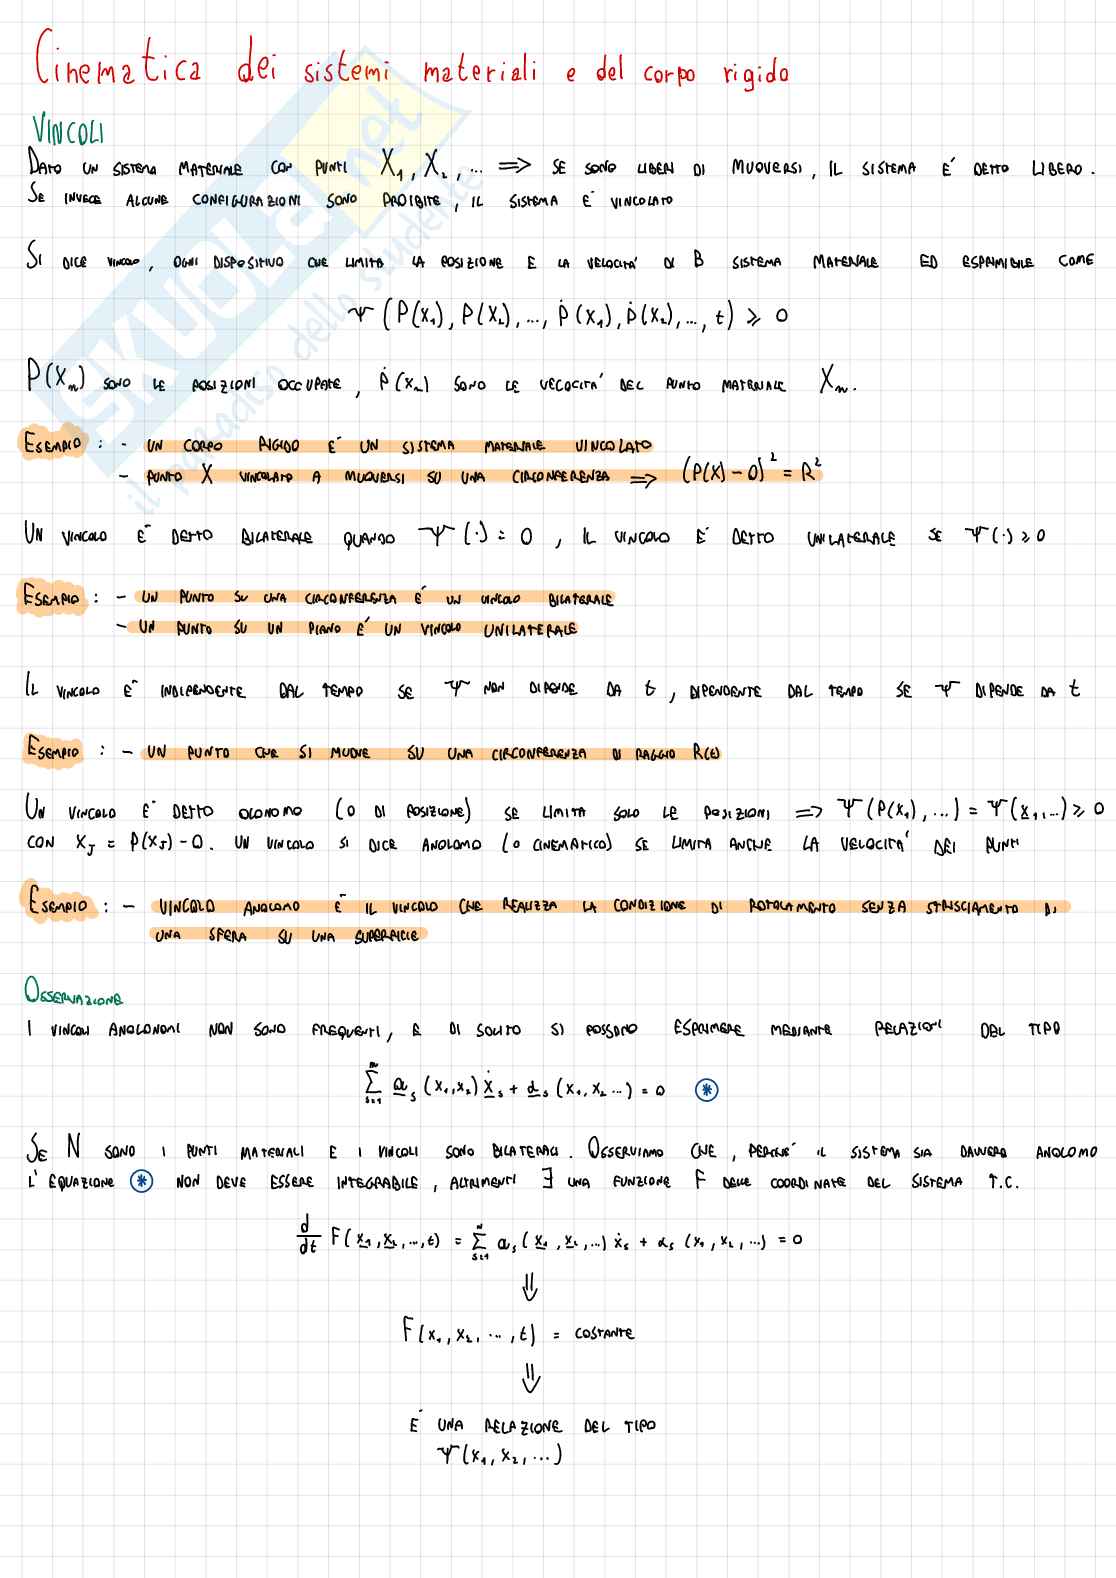 Cinematica dei sistemi materiali e del corpo rigido
VINCOLI
DATO UN SISTEMA MATERIALE CON PUNTI X₁, X₂, ... ⟹ SE SONO LIBERI DI MUOVERSI, IL SISTEMA E' DETTO LIBERO.
SE INVECE ALCUNE CONFIGURAZIONI SONO PROIBITE, IL SISTEMA E' VINCOLATO
SI DICE VINCOLO, OGNI DISPOSITIVO CHE LIMITA LA POSIZIONE E LA VELOCITA' DI B SISTEMA MATERIALE ED ESPRIMIBILE COME
Ψ(P(X₁), P(X₂), ..., Ṗ(X₁), Ṗ(X₂), ..., t) ⩾ 0
P(Xₙ) SONO LE POSIZIONI OCCUPATE, Ṗ(Xₙ) SONO LE VELOCITA' DEL PUNTO MATERIALE Xₙ.
ESEMPIO : - UN CORPO RIGIDO E' UN SISTEMA MATERIALE VINCOLATO
- PUNTO X VINCOLATO A MUOVERSI SU UNA CIRCONFERENZA ⟹ (P(X) - O)² = R²
UN VINCOLO E' DETTO BILATERALE QUANDO Ψ(·) = 0, IL VINCOLO E' DETTO UNILATERALE SE Ψ(·) ⩾ 0
ESEMPIO : - UN PUNTO SU UNA CIRCONFERENZA E' UN VINCOLO BILATERALE
- UN PUNTO SU UN PIANO E' UN VINCOLO UNILATERALE
IL VINCOLO E' INDIPENDENTE DAL TEMPO SE Ψ NON DIPENDE DA t, DIPENDENTE DAL TEMPO SE Ψ DIPENDE DA t
ESEMPIO : - UN PUNTO CHE SI MUOVE SU UNA CIRCONFERENZA DI RAGGIO R(t)
UN VINCOLO E' DETTO OLONOMO (O DI POSIZIONE) SE LIMITA SOLO LE POSIZIONI ⟹ Ψ(P(X₁), ...) = Ψ(x̲₁, ...) ⩾ 0
CON X_J = P(X_J) - O. UN VINCOLO SI DICE ANOLOMO (O CINEMATICO) SE LIMITA ANCHE LA VELOCITA' DEI PUNTI
ESEMPIO : - VINCOLO ANOLOMO E' IL VINCOLO CHE REALIZZA LA CONDIZIONE DI ROTOLAMENTO SENZA STRISCIAMENTO DI
UNA SFERA SU UNA SUPERFICIE
OSSERVAZIONE
I VINCOLI ANOLONOMI NON SONO FREQUENTI, E DI SOLITO SI POSSONO ESPRIMERE MEDIANTE RELAZIONI DEL TIPO
∑ₛ₌₁ⁿ a̲ₛ (x₁, x₂) ẋ̲ₛ + α̲ₛ (x₁, x₂ ...) = 0 ⊛
SE N SONO I PUNTI MATERIALI E I VINCOLI SONO BILATERALI. OSSERVIAMO CHE, PERCHE' IL SISTEMA SIA DAVVERO ANOLOMO
L'EQUAZIONE ⊛ NON DEVE ESSERE INTEGRABILE, ALTRIMENTI ∃ UNA FUNZIONE F DELLE COORDINATE DEL SISTEMA T.C.
d/dt F(x̲₁, x̲₂, ..., t) = ∑ₛ₌₁ᴺ aₛ (x̲₁, x̲₂, ...) ẋₛ + αₛ (x₁, x₂, ...) = 0
⇓
F(x₁, x₂, ..., t) = COSTANTE
⇓
E' UNA RELAZIONE DEL TIPO
Ψ(x₁, x₂, ...)
SKUOLA.net
il paradiso dello studente